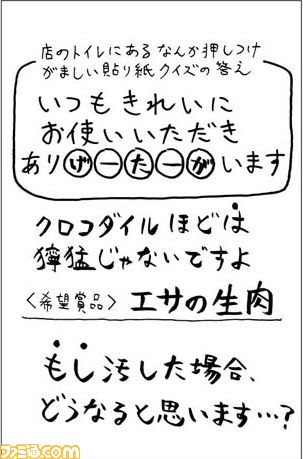 店のトイレにあるなんか押しつけ
がましい貼り紙クイズの答え
いつもきれいに
お使いいただき
ありげーたーがいます
クロコダイルほどは
獰猛じゃないですよ
〈希望賞品〉エサの生肉
もし汚した場合、
どうなると思います…?
ファミ通.com